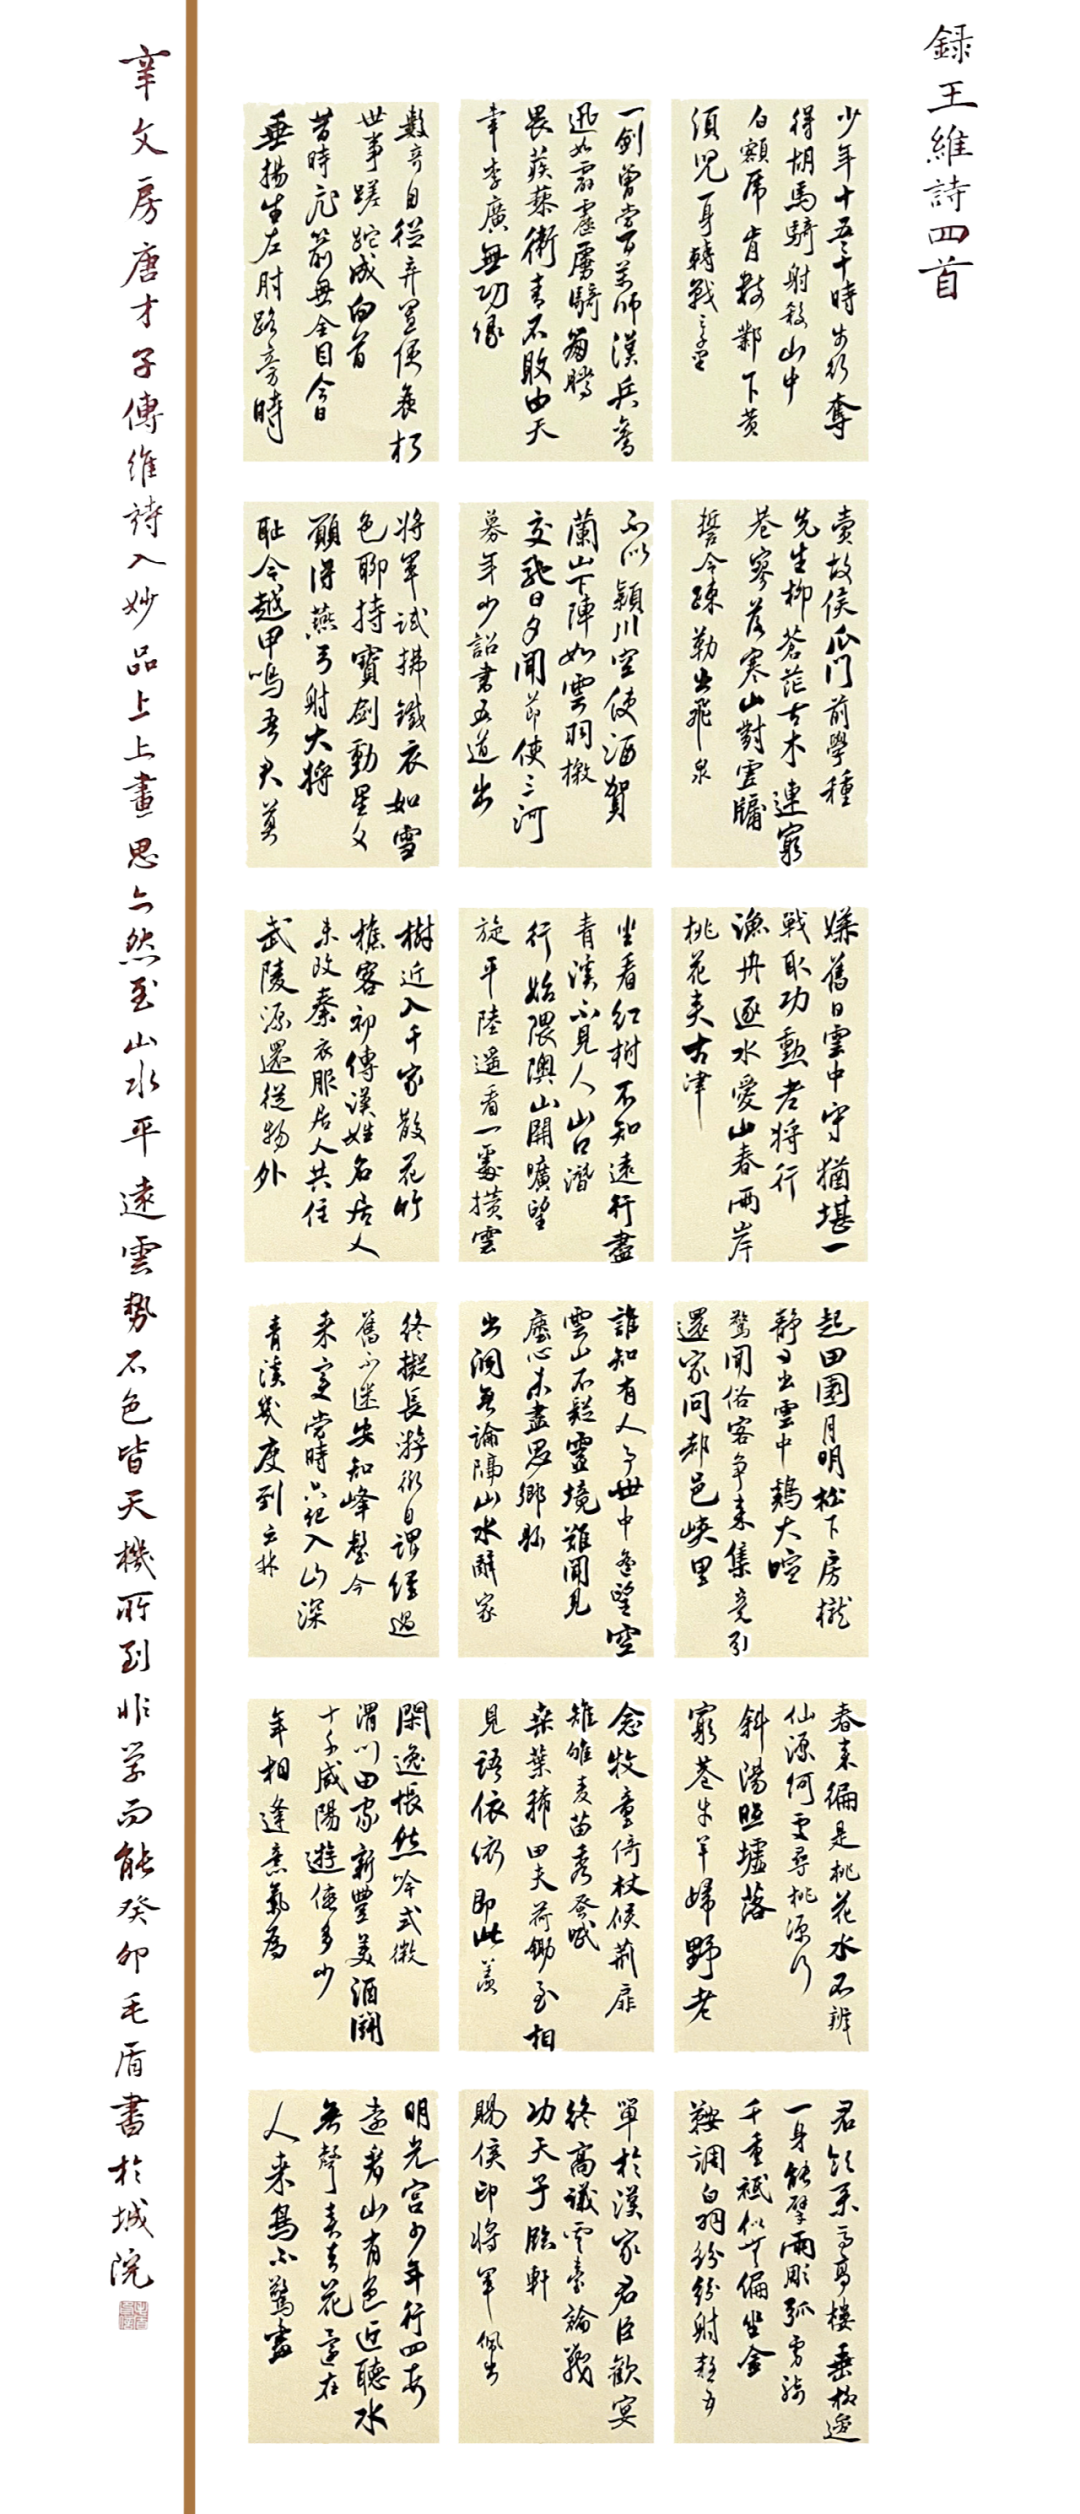 録王維詩四首
少年十五二十時步行奪
得胡馬騎射殺山中
白額虎肯數鄴下黃
須兒一身轉戰三千里
一劍曾當百萬師漢兵奮
迅如霹靂虜騎奔騰
畏蒺藜衛青不敗由天
幸李廣無功緣
數奇自從弃置便衰朽
世事蹉跎成白首
昔時飛箭無全目今日
垂楊生左肘路旁時
賣故侯瓜門前學種
先生柳蒼茫古木連窮
巷寥落寒山對虛牖
誓令疏勒出飛泉
不似潁川空使酒賀
蘭山下陣如雲羽檄
交馳日夕聞節使三河
募年少詔書五道出
將軍試拂鐵衣如雪
色聊持寶劍動星文
願得燕弓射大將
耻令越甲鳴吾君莫
嫌舊日雲中守猶堪一
戰取功勲老將行
漁舟逐水愛山春兩岸
桃花夾古津
坐看紅樹不知遠行盡
青溪不見人山口潛
行始隈隩山開曠望
旋平陸遥看一處攢雲
樹近入千家散花竹
樵客初傳漢姓名居人
未改秦衣服居人共住
武陵源還從物外
起田園月明松下房櫳
靜日出雲中鷄犬喧
驚聞俗客爭來集竞引
還家問都邑峽里
誰知有人事世中遥望空
雲山不疑靈境難聞見
塵心未盡思鄉縣
出洞無論隔山水辭家
終擬長游衍自謂經過
舊不迷安知峰壑今
来變當時只記入山深
青溪幾度到雲林
春来徧是桃花水不辨
仙源何處尋桃源行
斜陽照墟落
窮巷牛羊歸野老
念牧童倚杖候荊扉
雉雊麦苗秀蚕眠
桑葉稀田夫荷鋤至相
見語依依即此羨
閑逸悵然吟式微
渭川田家新豐美酒鬭
十千咸陽遊俠多少
年相逢意氣為
君飲系馬高樓垂柳邊
一身能擘兩彫弧虜騎
千重祗似無偏坐金
鞍調白羽紛紛射殺五
單於漢家君臣歡宴
終高議雲臺論戰
功天子臨軒
賜侯印將軍佩出
明光宫少年行四首
遠看山有色近聽水
無聲春去花還在
人来鳥不驚畫
辛文房唐才子傳維詩入妙品上上畫思亦然至山水平遠雲勢石色皆天機所到非学而能癸卯毛盾書於城院